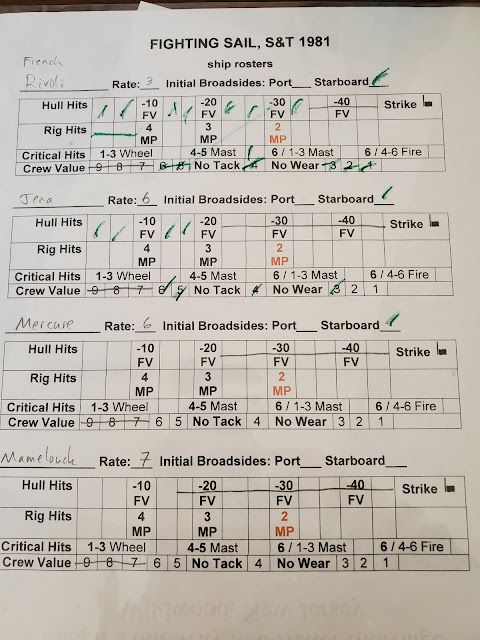 FIGHTING SAIL, S&T 1981
ship rosters
French
Rivoli Rate: 3 Initial Broadsides: Port___ Starboard
Hull Hits -10 FV -20 FV -30 FV -40 FV Strike
Rig Hits 4 MP 3 MP 2 MP
Critical Hits 1-3 Wheel 4-5 Mast 6 / 1-3 Mast 6 / 4-6 Fire
Crew Value 9 8 7 6 5 No Tack 4 No Wear 3 2 1
Jena Rate: 6 Initial Broadsides: Port___ Starboard
Hull Hits -10 FV -20 FV -30 FV -40 FV Strike
Rig Hits 4 MP 3 MP 2 MP
Critical Hits 1-3 Wheel 4-5 Mast 6 / 1-3 Mast 6 / 4-6 Fire
Crew Value 9 8 7 6 5 No Tack 4 No Wear 3 2 1
Mercure Rate: 6 Initial Broadsides: Port___ Starboard
Hull Hits -10 FV -20 FV -30 FV -40 FV Strike
Rig Hits 4 MP 3 MP 2 MP
Critical Hits 1-3 Wheel 4-5 Mast 6 / 1-3 Mast 6 / 4-6 Fire
Crew Value 9 8 7 6 5 No Tack 4 No Wear 3 2 1
Mamelouck Rate: 7 Initial Broadsides: Port___ Starboard___
Hull Hits -10 FV -20 FV -30 FV -40 FV Strike
Rig Hits 4 MP 3 MP 2 MP
Critical Hits 1-3 Wheel 4-5 Mast 6 / 1-3 Mast 6 / 4-6 Fire
Crew Value 9 8 7 6 5 No Tack 4 No Wear 3 2 1
Wildwood, New Jersey